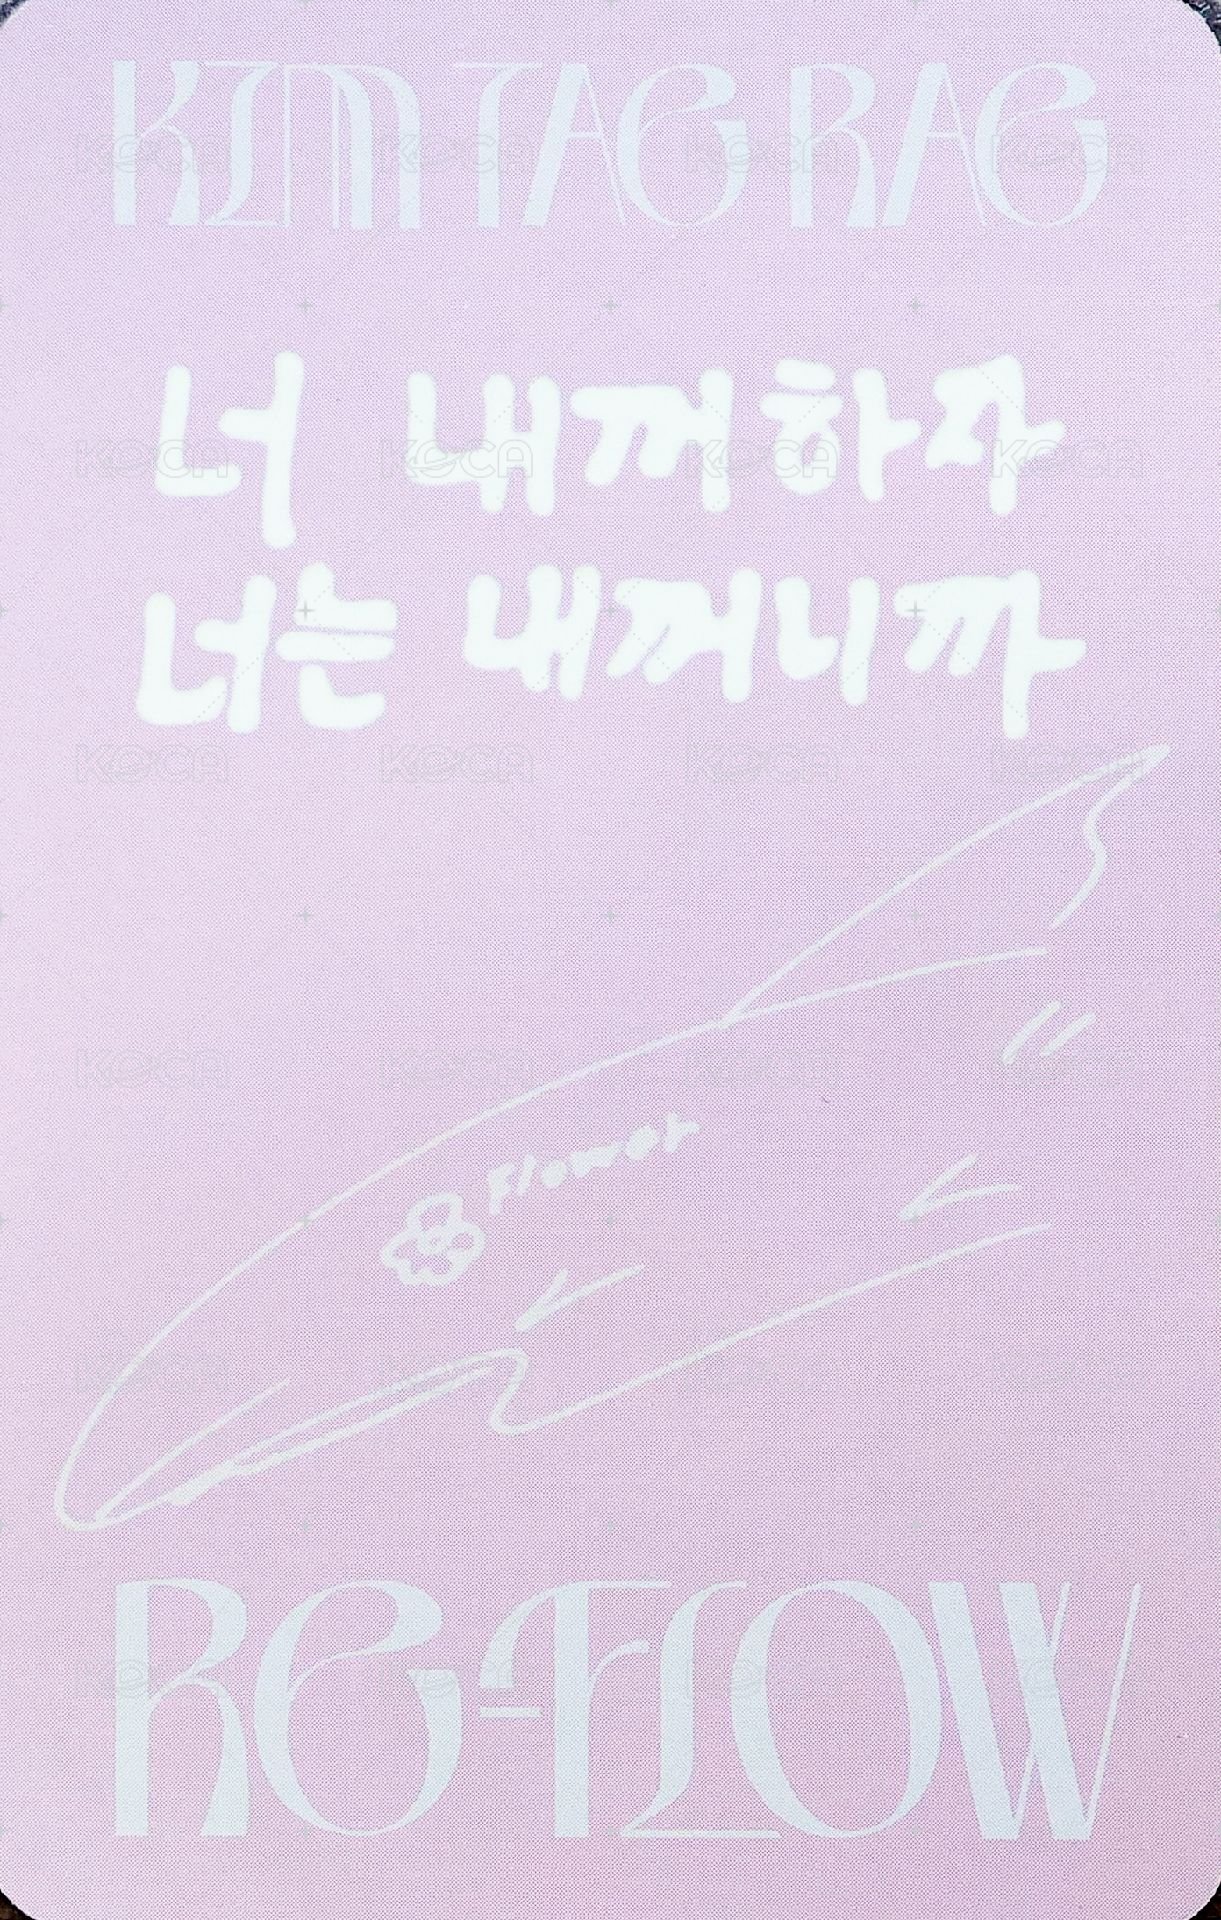 KIM TAE RAE
너 내꺼하자
너는 내꺼니까
Flower
RE-FLOW
KOCA